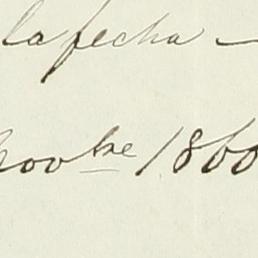 la fecha —
Novbre 1860